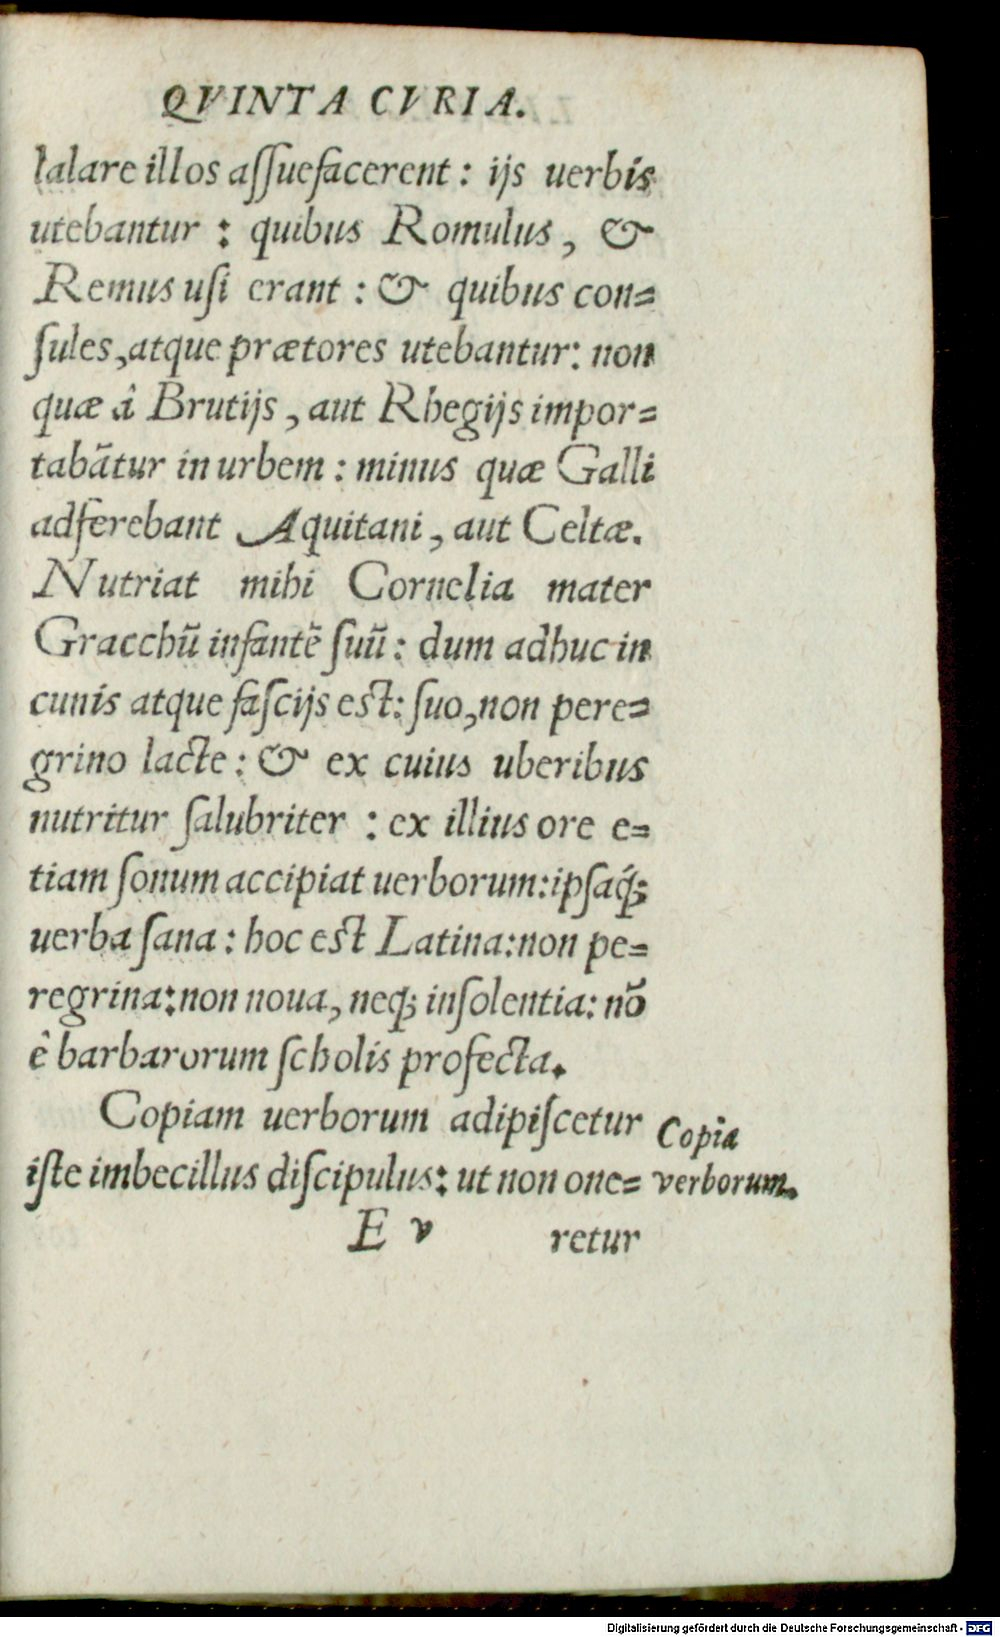 QVINTA CVRIA.
lalare illos aſſuefacerent: ijs uerbis
utebantur: quibus Romulus, &
Remus uſi erant: & quibus con=
ſules, atque prætores utebantur: non
quæ â Brutijs, aut Rhegijs impor=
tabātur in urbem: minus quæ Galli
adferebant Aquitani, aut Celtæ.
Nutriat mihi Cornelia mater
Gracchū infantē ſuū: dum adhuc in
cunis atque faſcijs eſt: ſuo, non pere=
grino lacte: & ex cuius uberibus
nutritur ſalubriter: ex illius ore e=
tiam ſonum accipiat uerborum: ipſaq́;
uerba ſana: hoc eſt Latina: non pe=
regrina: non noua, neq; inſolentia: nō
ê barbarorum ſcholis profecta.
Copiam uerborum adipiſcetur
iſte imbecillus diſcipulus: ut non one=
Copia
verborum.
E v retur
Digitalisierung gefördert durch die Deutsche Forschungsgemeinschaft - DFG